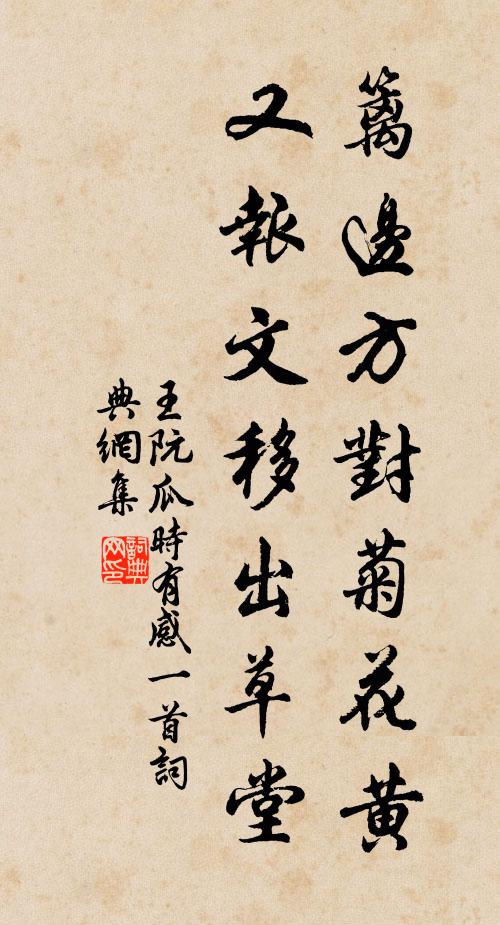 籬邊方對菊花黃
又報文移出草堂
王阮瓜時有感一首詞
典網集
詞典
网印